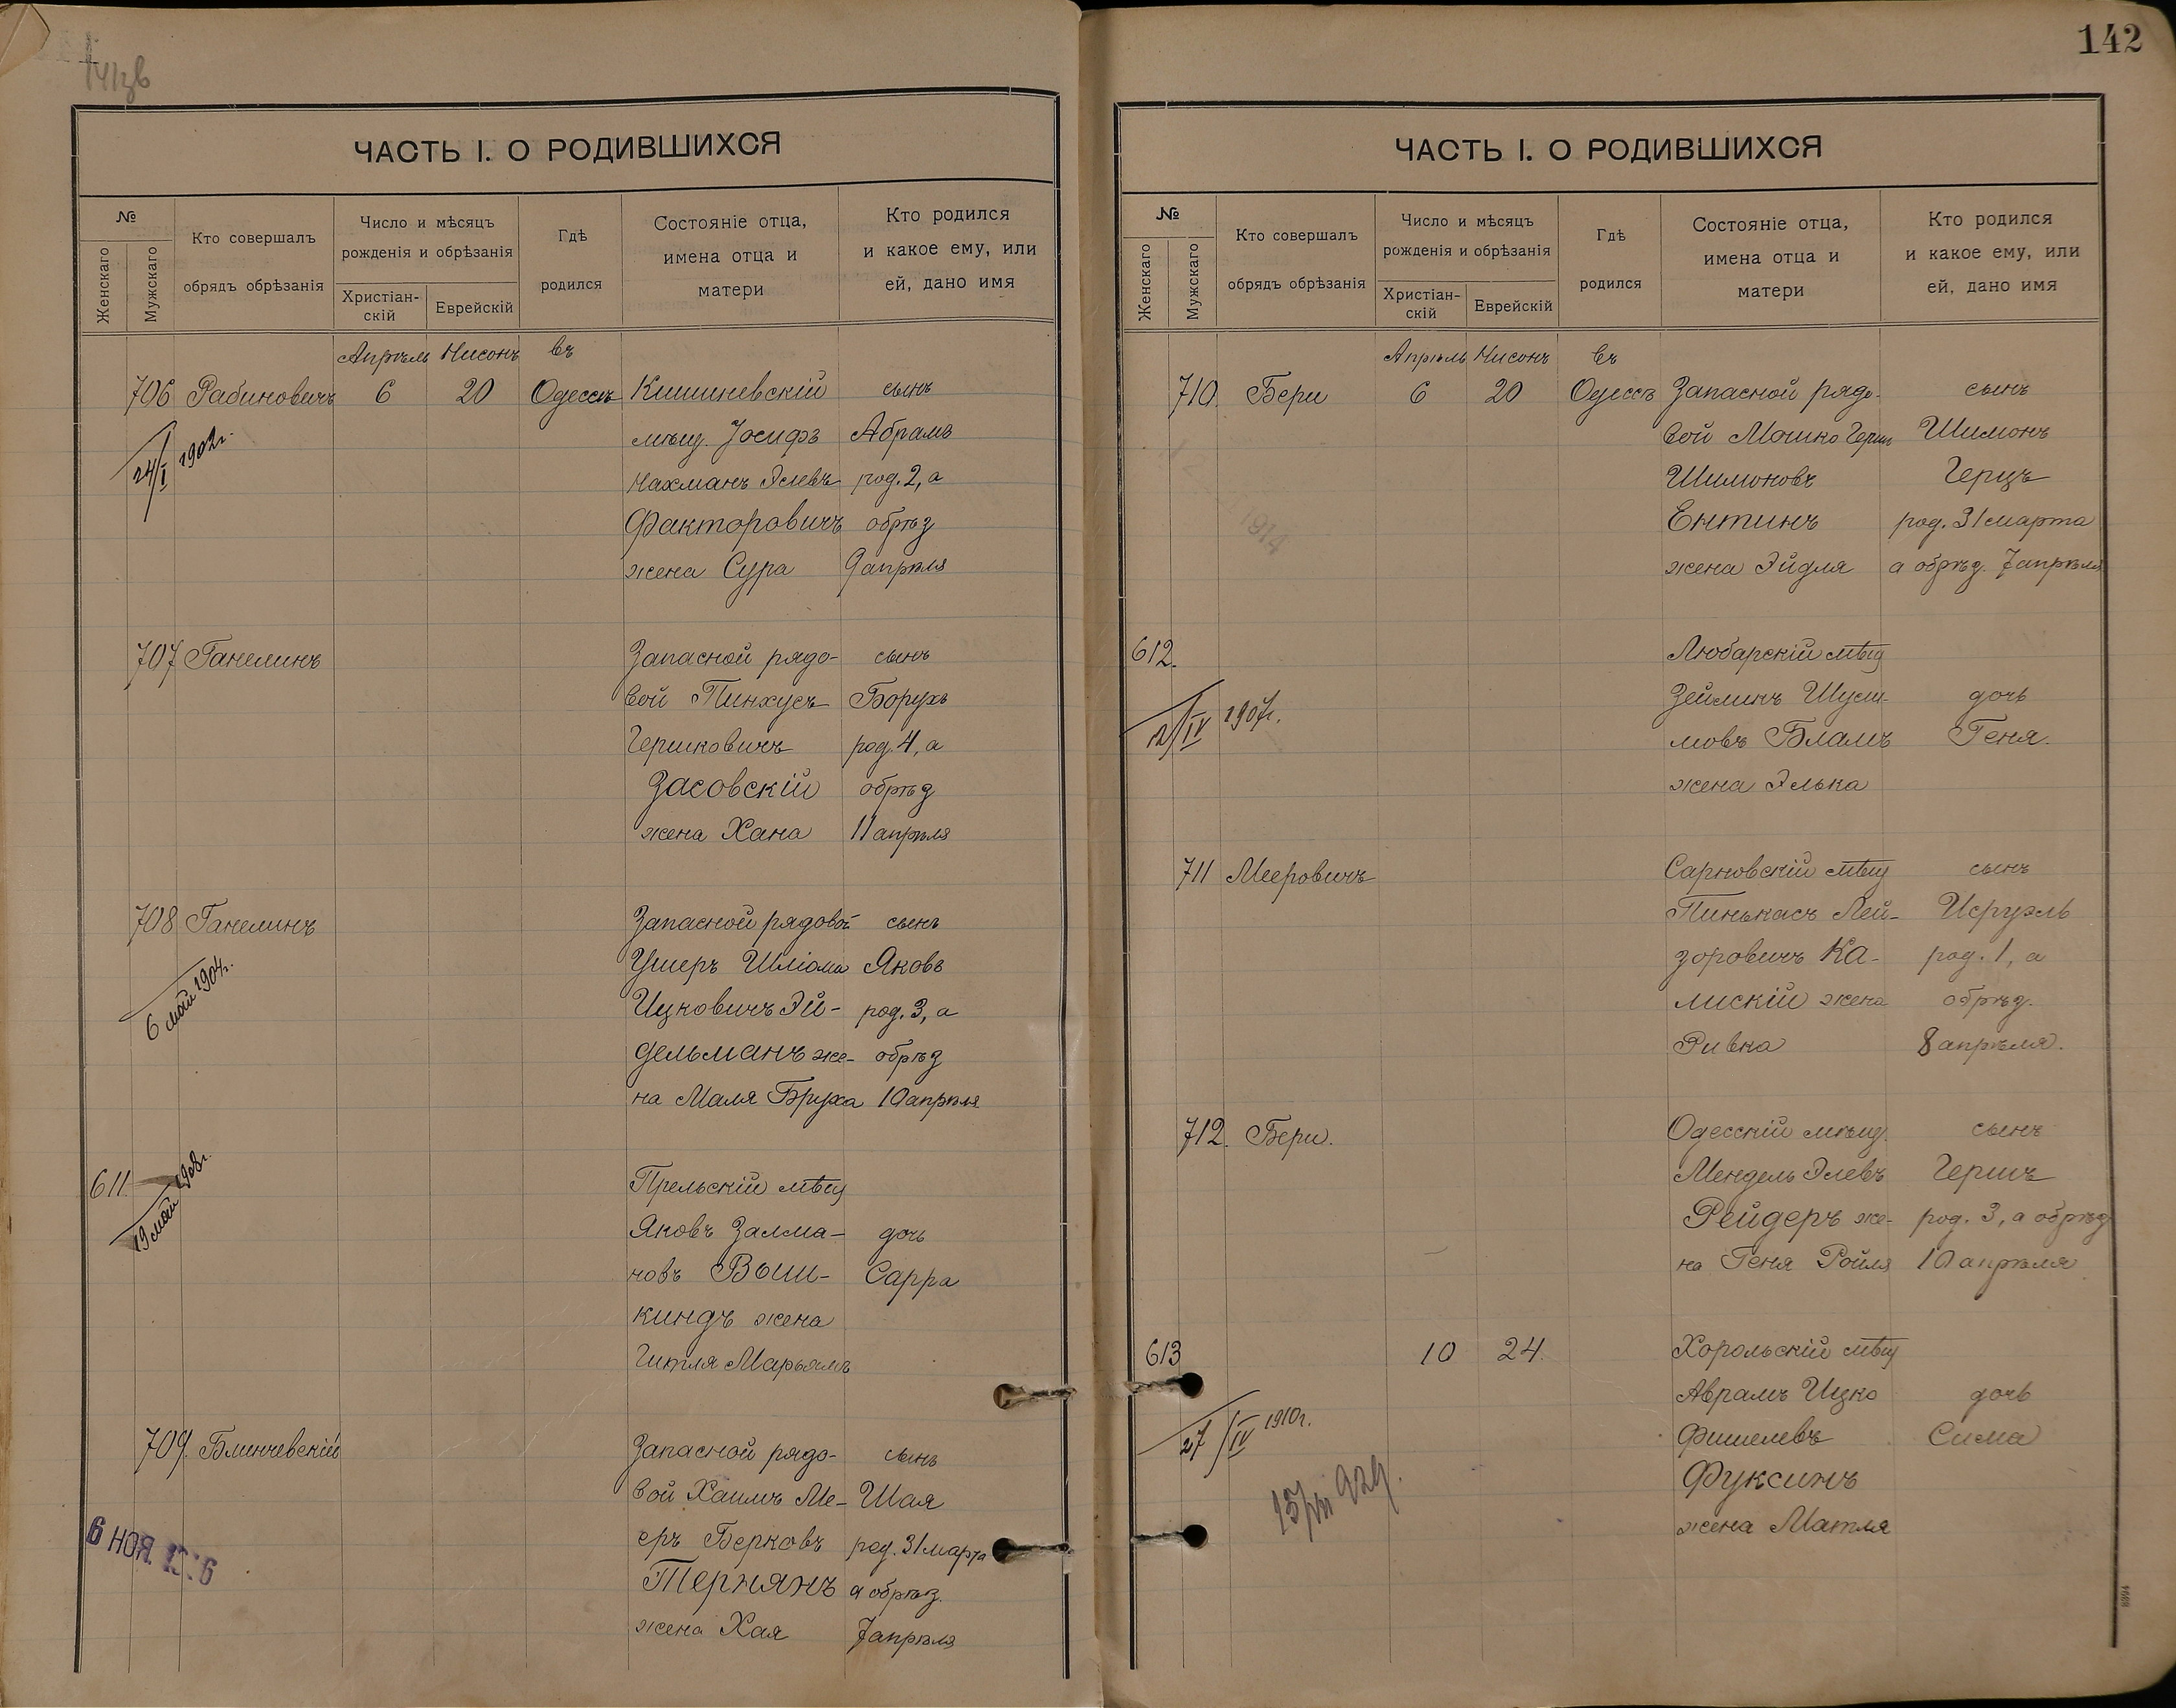 141зв
ЧАСТЬ I. О РОДИВШИХСЯ
№
Женскаго
Мужскаго
Кто совершалъ
обрядъ обрѣзанія
Число и мѣсяцъ
рожденія и обрѣзанія
Христіан-
скій
Еврейскій
Гдѣ
родился
Состояніе отца,
имена отца и
матери
Кто родился
и какое ему, или
ей, дано имя
Апрѣль Нисонъ въ
706 Рабиновичъ 6 20 Одессѣ Кишиневскій сынъ
мѣщ. Іосифъ Абрамъ
24/I 1902г.
Нахманъ Элевъ род. 2, а
Факторовичъ обрѣз
жена Сура 9 апрѣля
707 Ганелинъ Запасной рядо- сынъ
вой Пинхусъ Борухъ
Гершковичъ род. 4, а
Засовскій обрѣз
жена Хана 11 апрѣля
708 Ганелинъ Запасной рядовой сынъ
Ушеръ Шліома Яковъ
6 мая 1904г.
Ицковичъ Эй- род. 3, а
дельманъ же- обрѣз
на Маля Бруха 10 апрѣля
611 Прельскій мѣщ
19 мая 1908г.
Яковъ Залма- дочь
новъ Выш- Сарра
киндъ жена
Гитля Марьямъ
709. Блинчевскій Запасной рядо- сынъ
вой Хаимъ Ме- Шая
6 НОЯ.
еръ Берковъ род. 31 марта
Тернянъ а обрѣз.
жена Хая 7 апрѣля
142
ЧАСТЬ I. О РОДИВШИХСЯ
№
Женскаго
Мужскаго
Кто совершалъ
обрядъ обрѣзанія
Число и мѣсяцъ
рожденія и обрѣзанія
Христіан-
скій
Еврейскій
Гдѣ
родился
Состояніе отца,
имена отца и
матери
Кто родился
и какое ему, или
ей, дано имя
Апрѣль Нисонъ въ
710. Бери 6 20 Одессѣ Запасной рядо- сынъ
вой Мошко Герш Шимонъ
Шимоновъ Герцъ
1914
Ентинъ род. 31 марта
жена Эйдля а обрѣз. 7 апрѣля
612. Любарскій мѣщ
Зейлинъ Шули- дочь
12/IV 1907г.
мовъ Бламъ Геня.
жена Элька
711 Мееровичъ Сарновскій мѣщ сынъ
Пинькасъ Лей- Исруэль
зоровичъ Ка- род. 1, а
лискій жена обрѣз.
Ривка 8 апрѣля.
712. Бери. Одесскій мѣщ. сынъ
Мендель Элевъ Гершъ
Рейдеръ же- род. 3, а обрѣз
на Геня Ройля 10 апрѣля
613 10 24. Хорольскій мѣщ
Аврамъ Ицко дочь
27/IV 1910г.
Фишелевъ Сима
Фуксинъ
жена Матля